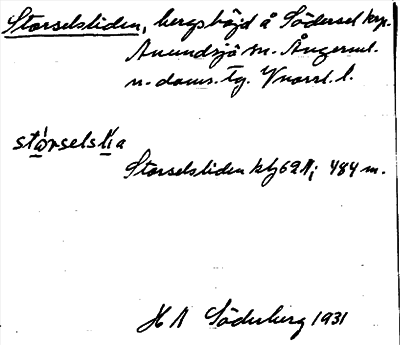 Storselsliden, bergshöjd å Södersel krp.
Anundsjö sn. Ångerml.
n. doms. tg. Vnorrl. l.
stòrselslia
Storselsliden kbl 62 Ⅱ; 484 m.
H A Söderberg 1931